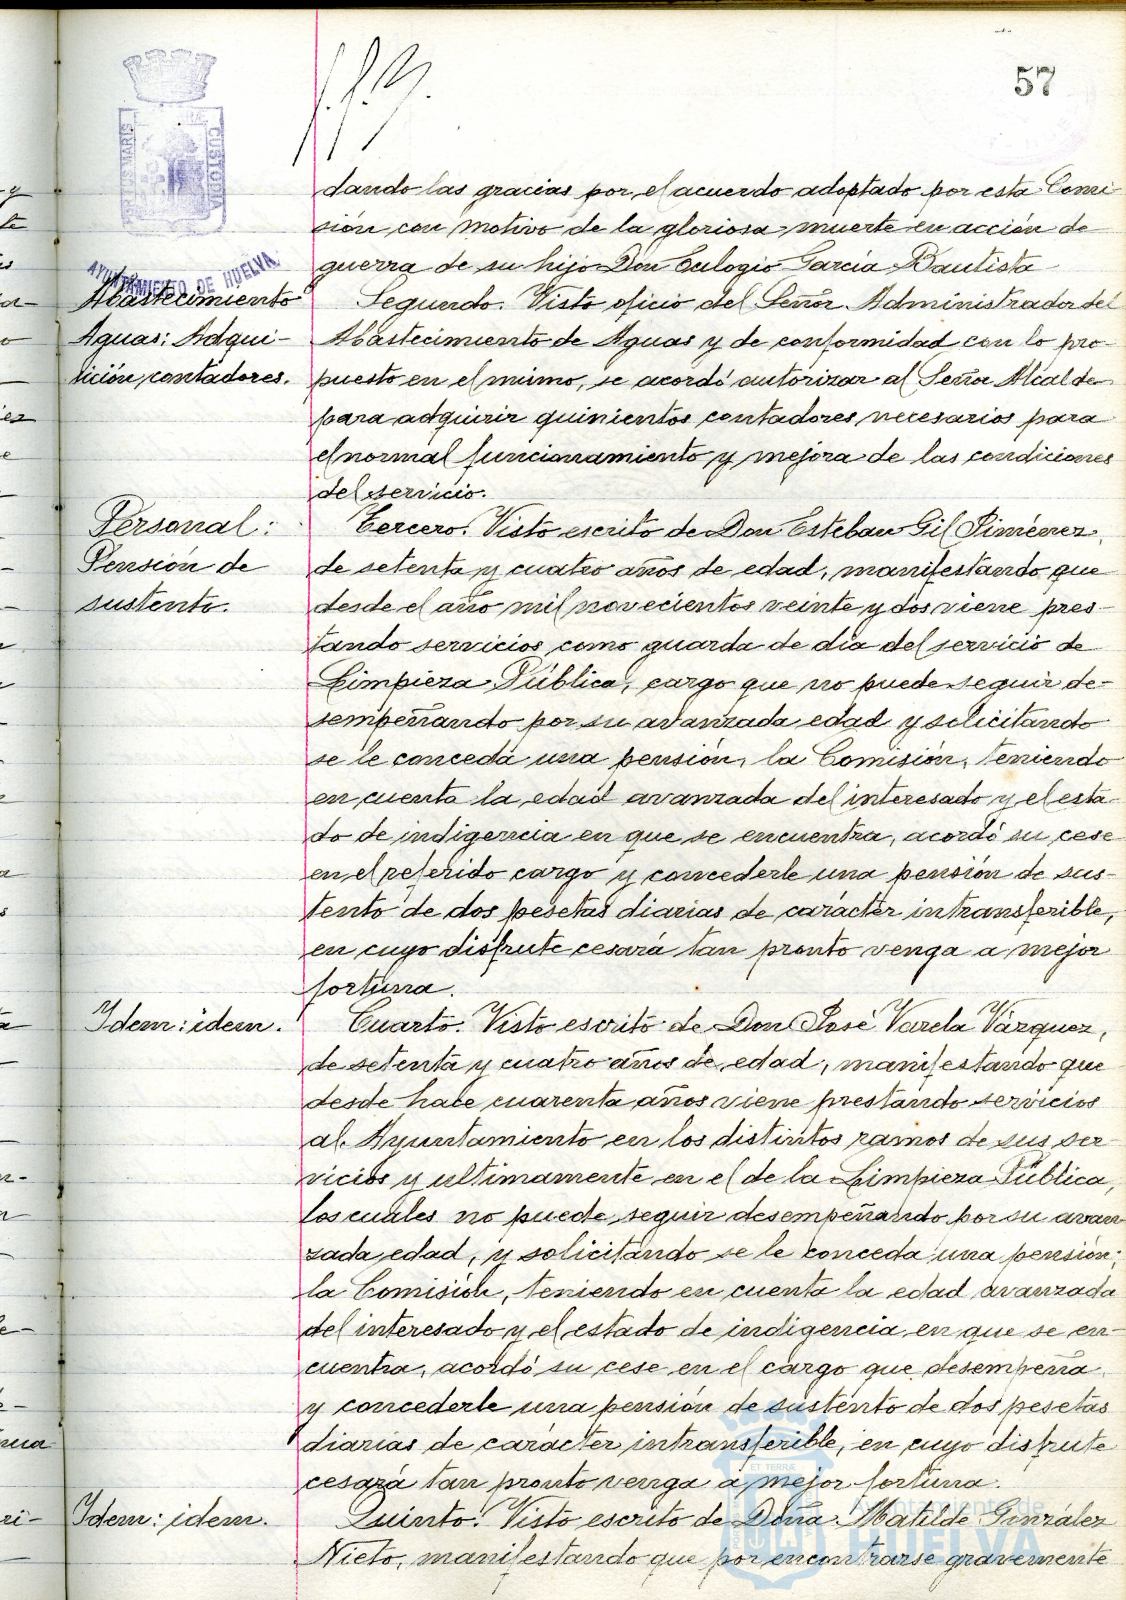 57
PORTUS MARIS
CUSTODIA
AYUNTAMIENTO DE HUELVA
dando las gracias por el acuerdo adoptado por esta Comi-
sión con motivo de la gloriosa muerte en acción de
guerra de su hijo Don Eulogio García Bautista
Abastecimiento
Aguas: Adqui-
sición contadores.
Segundo. Visto oficio del Señor Administrador del
Abastecimiento de Aguas y de conformidad con lo pro-
puesto en el mismo, se acordó autorizar al Señor Alcalde
para adquirir quinientos contadores necesarios para
el normal funcionamiento y mejora de las condiciones
del servicio.
Personal:
Pensión de
sustento.
Tercero. Visto escrito de Don Esteban Gil Jiménez,
de setenta y cuatro años de edad, manifestando que
desde el año mil novecientos veinte y dos viene pres-
tando servicios como guarda de día del servicio de
Limpieza Pública, cargo que no puede seguir de-
sempeñando por su avanzada edad y solicitando
se le conceda una pensión, la Comisión, teniendo
en cuenta la edad avanzada del interesado y el esta-
do de indigencia en que se encuentra, acordó su cese
en el referido cargo y concederle una pensión de sus-
tento de dos pesetas diarias de carácter intransferible,
en cuyo disfrute cesará tan pronto venga a mejor
fortuna.
Idem: idem.
Cuarto. Visto escrito de Don José Varela Vázquez,
de setenta y cuatro años de edad, manifestando que
desde hace cuarenta años viene prestando servicios
al Ayuntamiento en los distintos ramos de sus ser-
vicios y ultimamente en el de la Limpieza Pública,
los cuales no puede seguir desempeñando por su avan
zada edad, y solicitando se le conceda una pensión;
la Comisión, teniendo en cuenta la edad avanzada
del interesado y el estado de indigencia en que se en-
cuentra, acordó su cese en el cargo que desempeña
y concederle una pensión de sustento de dos pesetas
diarias de carácter intransferible, en cuyo disfrute
cesará tan pronto venga a mejor fortuna.
Idem: idem.
Quinto. Visto escrito de Doña Matilde González
Nieto, manifestando que por encontrarse gravemente
ET TERRÆ
Ayuntamiento de
HUELVA